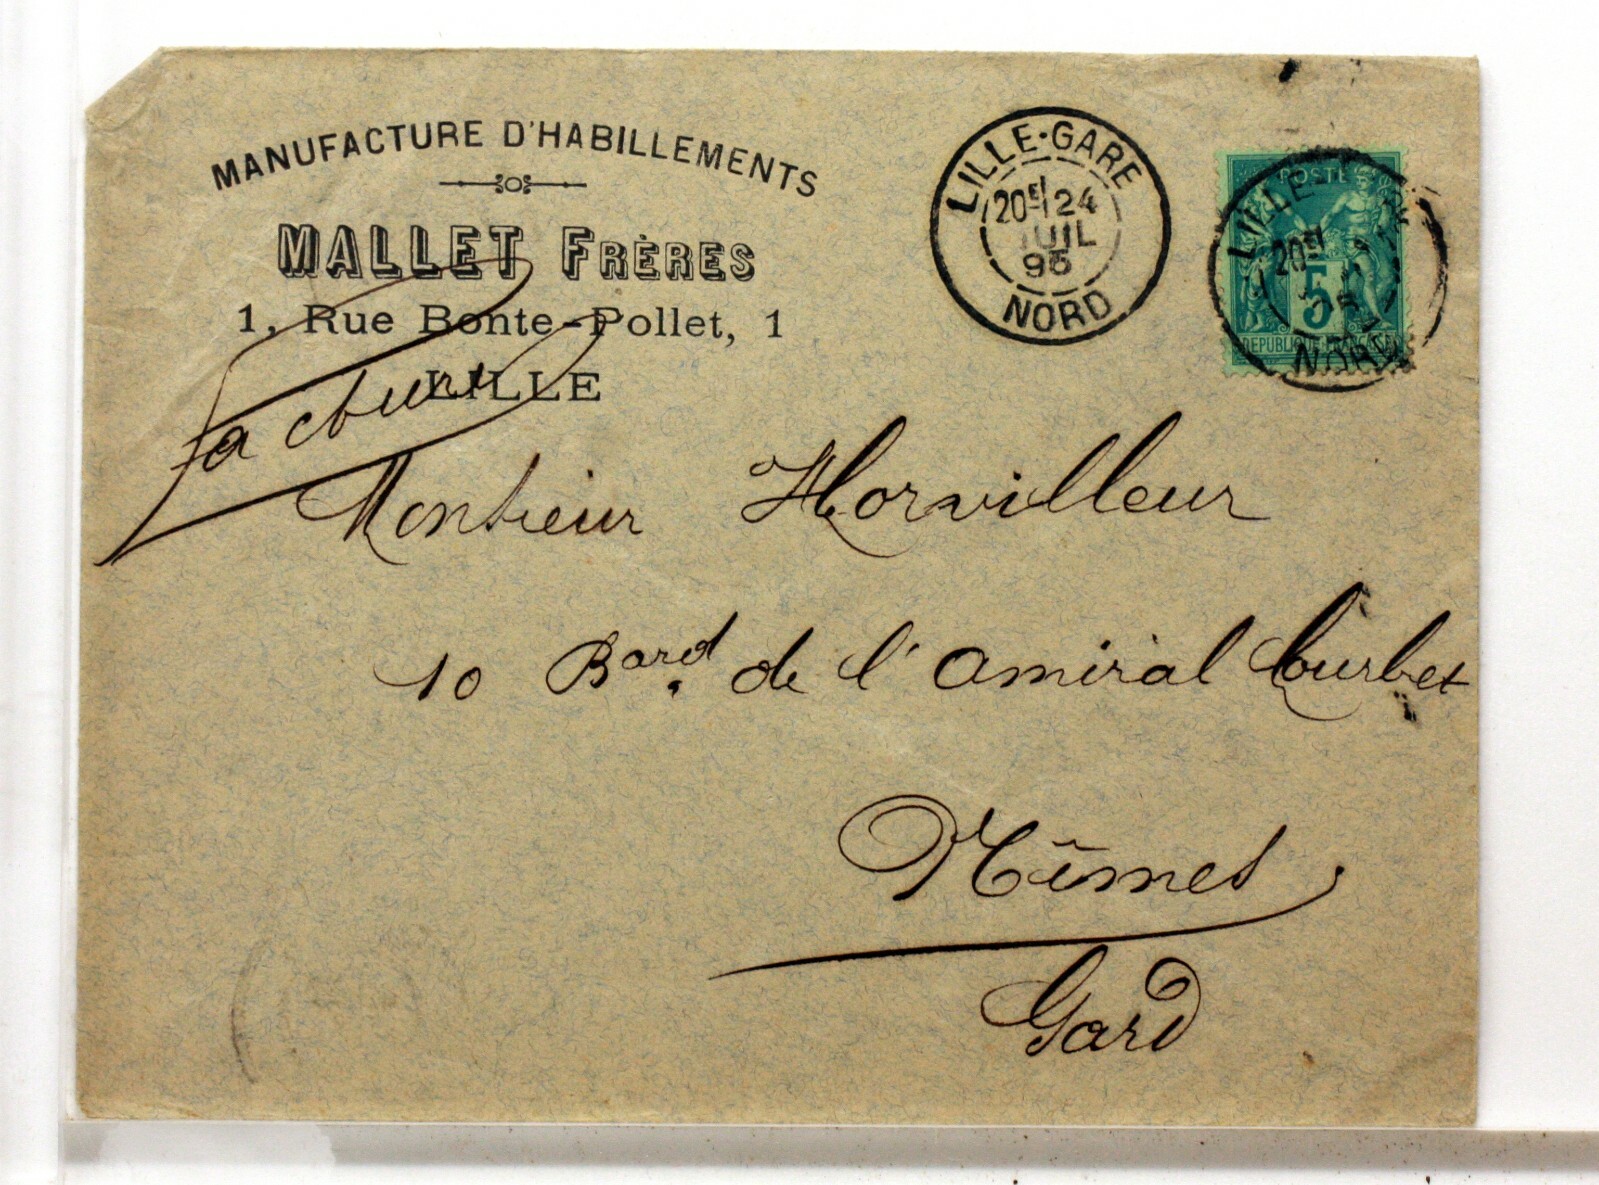 MANUFACTURE D'HABILLEMENTS
MALLET FRÈRES
1, Rue Bonte-Pollet, 1
LILLE
facture
LILLE-GARE
20E 24
JUIL
95
NORD
POSTE
5
REPUBLIQUE FRANÇAISE
LILLE
20E
95
NORD
Monsieur Horvilleur
10 Bard. de l'amiral Courbet
Nîmes
Gard